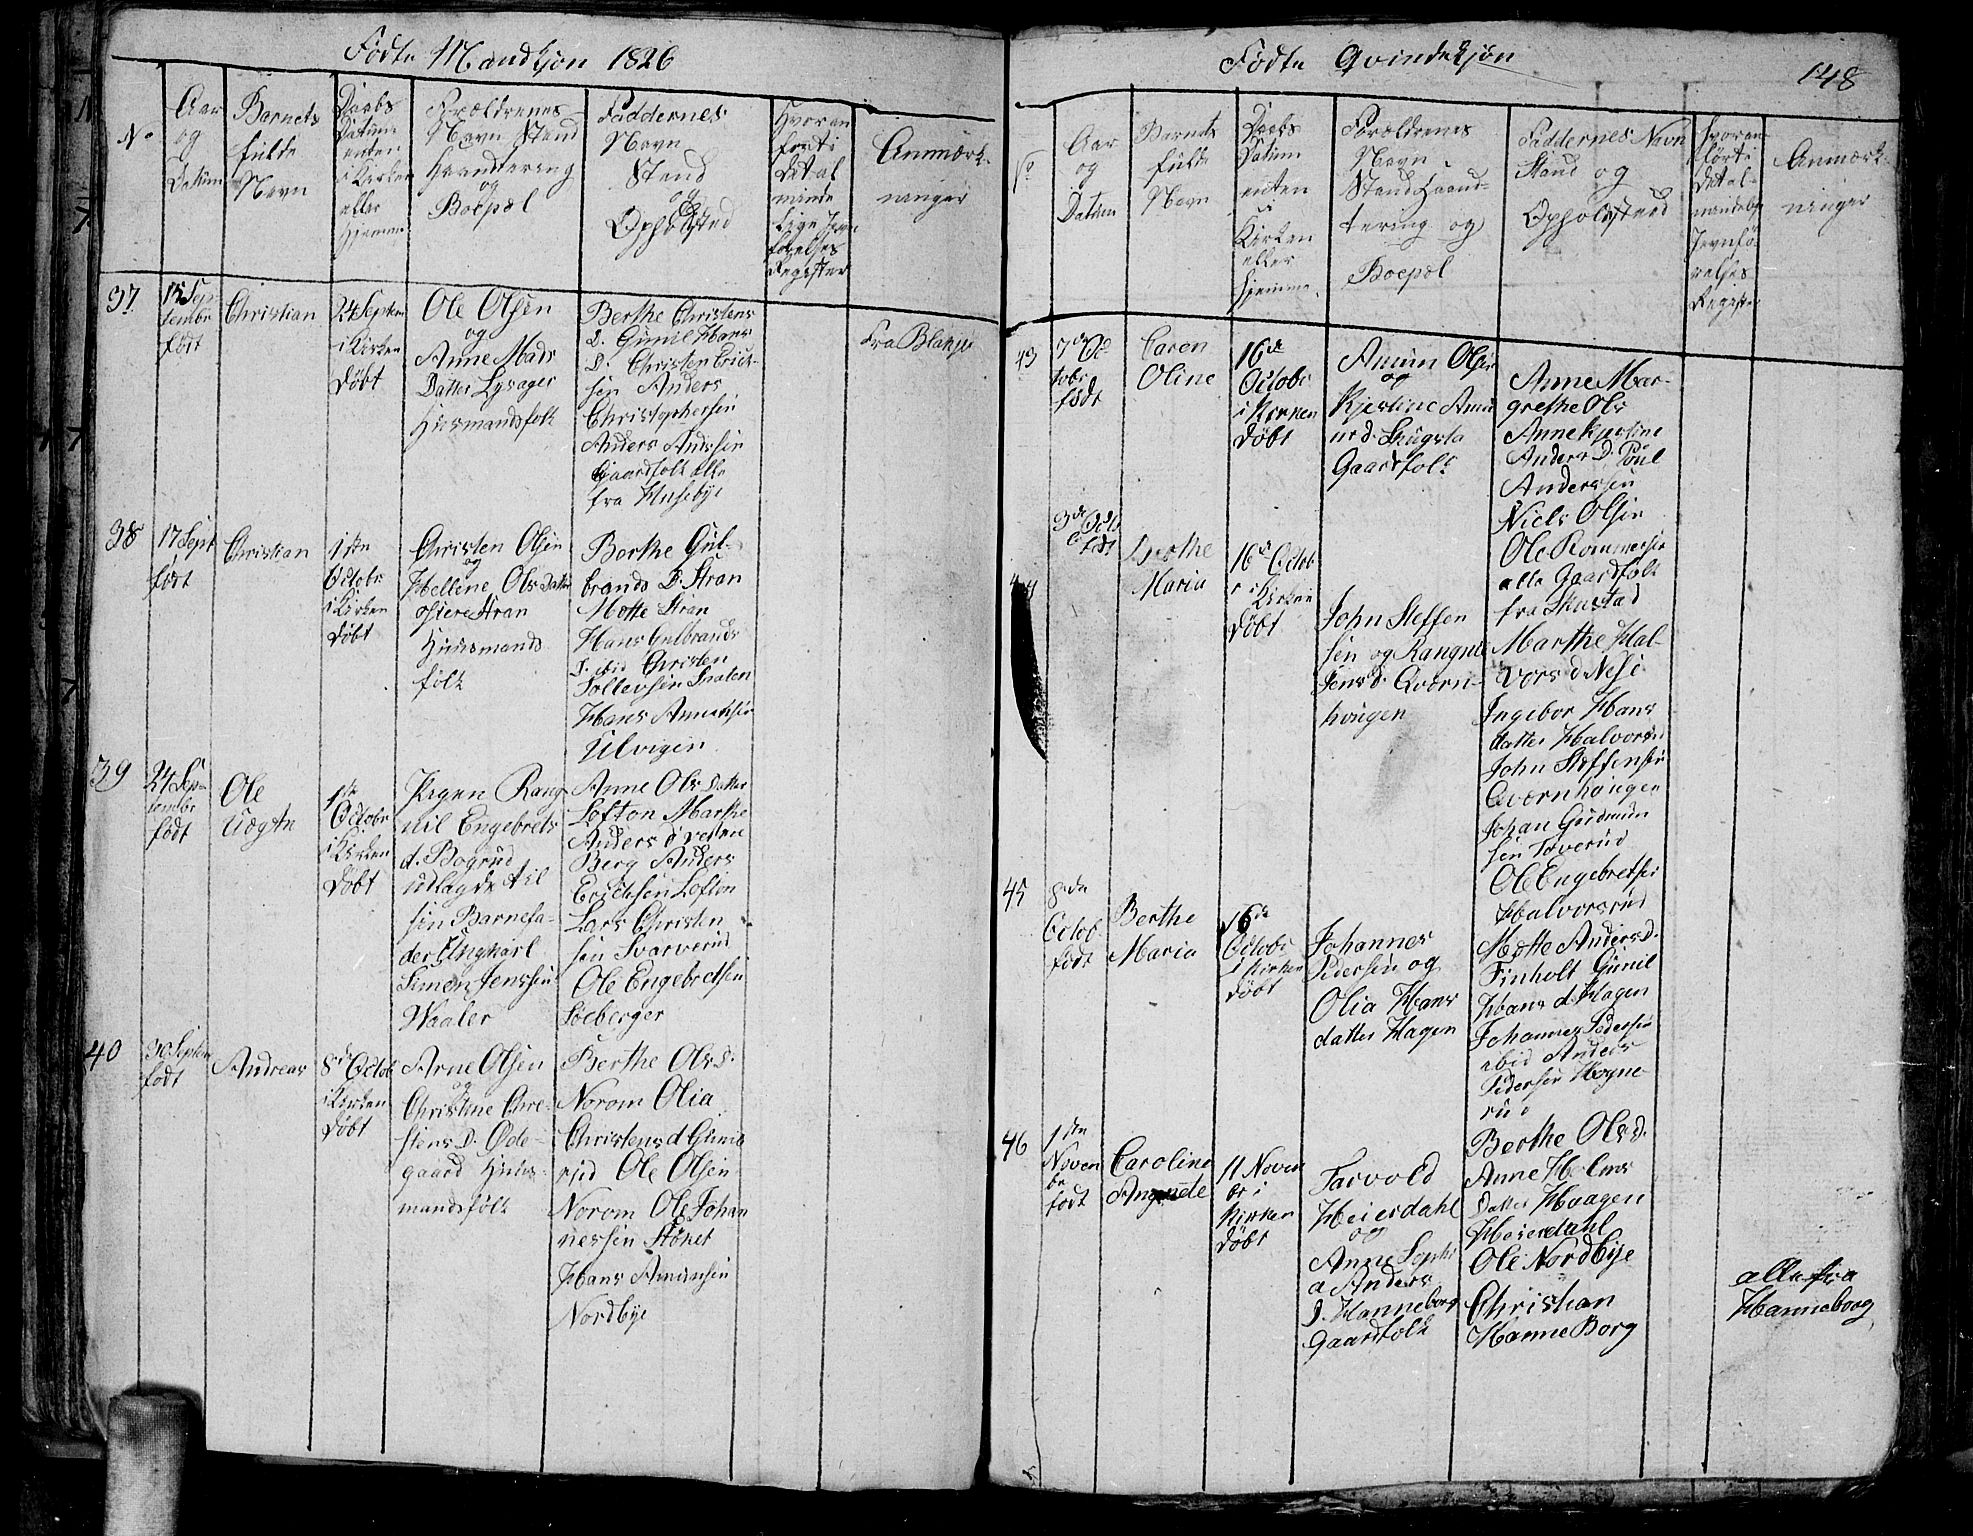 Fødte Mandkjøn 1826
No
Aar
og
Datum
Barnets
fulde
Navn
Daabs
Datum
enten
i Kirken
eller
Hjemme
Forældrenes
Navn Stand
Haandtering
og
Boepæl
Faddernes
Navn
Stand
og
Opholdsted
Hvor an
ført i
det al
minde
lige Jevn
førelses
Register
Anmærk-
ninger
37
15 Sep
tembr
født
Christian
24 Septem
i Kirken
døbt
Ole Olsen
og
Anne Mads
Datter Lysager
Huusmandsfolk
Berthe Christens
D. Gunil Hans
D. Christen Erick-
sen Anders
Christophersen
Anders
Gaardfolk alle
fra Huseby
fra Blakjer
38
17 Sept
født
Christian
1ste
Octobr
i Kirken
døbt
Christen Olsen
og
Hellene Ols Datter
Stran
Huusmands
folk
Berthe Gul-
brands D. Stran
Mette Stran
Hans Gulbrands
S. ibid Christen
Tollevsen Braten
Hans
Ulvigen
39
24 Sep-
tembr
født
Ole
1ste
Octobr
i Kirken
døbt
Pigen Rang
nil Engebrets
d. Bogrud
udlagde til
sin Barnefa-
der Ungkarl
Simen Jenssen
Waaler
Anne Ols Datter
Lofton Marthe
Anders d
Berg Anders
Ericksen Lofton
Lars Christen
sen Svarverud
Ole Engebretsen
Soeberger
40
30 Septem
født
Andreas
8de Octob
i Kirken
døbt
Arne Olsen
og
Christine Chre-
stens D. Øde-
gaard Huus-
mandsfolk
Berthe Ols d.
Norom Olia
Christens d
rud Ole Olsen
Norom Ole Johan
nessen Støket
Hans Amunsen
Nordbye
Fødte Qvindekjøn
148
No
Aar
og
Datum
Barnets
fulde
Navn
Daabs
Datum
enten
i
Kirken
eller
Hjemme
Forældrenes
Navn
Stand Haand-
tering og
Boepæl
Faddernes Navn
Stand og
Opholdsted
Hvor an
ført i
det al-
mindelige
Jevnfø
relses
Register
Anmærk-
ninger
43
7de Oc
tobr
født
Caren
Oline
16de
Octobr
i Kirken
døbt
Amun Olsen
og
Kjestine Amu
ne d. Skugsta
Gaardfolk
Anne Mar-
grethe Ols
Anne Kjerstine
Anders D. Poul
Anderssen
Niels Olsen
Ole
alle Gaardfolk
fra Skustad
44
3de Octb
født
Dorthe
Maria
16de Octob
r i Kirken
døbt
John Steffen
sen og Rangnil
Jens d. Qværn-
hougen
Marthe Hal-
vors d Nese
Ingebor Hans
datter Halvorsrud
John Steffensen
Qværnhaugen
Johan Gudmun
sen Toverud
Ole Engebretsen
Halvorsrud
45
8de
Octob
født
Berthe
Maria
16de
Octobr
i Kirken
døbt
Johannes
Pedersen og
Olia Hans
datter Hagen
Mette Anders D.
Finholt Gunil
Hans d. Hagen
Johannes Pedersen
ibid Anders
Pedersen Hogne-
rud
46
1ste
Novem
br
født
Caroline
11 Novem
br i
Kirken
døbt
Tarvold
Heierdahl
og
Anne Sophi
a Anders
D. Hanneborg
Gaardfolk
Berthe Ols d.
Anne Holms
Datter Haagen
Heierdahl
Ole Nordbye
Christian
Hanne Borg
alle fra
Hanneborg